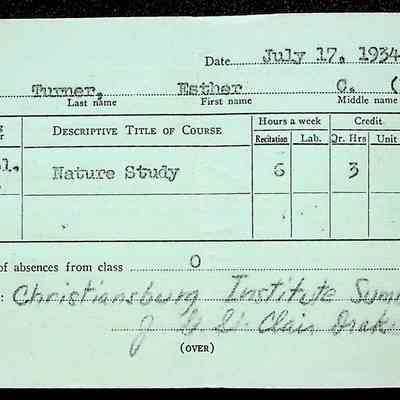 Date July 17, 1934
Turner, Esther C. (
Last name First name Middle name
Hours a week Credit
DESCRIPTIVE TITLE OF COURSE Recitation Lab. Qr. Hrs Unit
Nature Study 6 3
of absences from class 0
: Christiansburg Institute Summ
J G St. Clair Drake
(OVER)